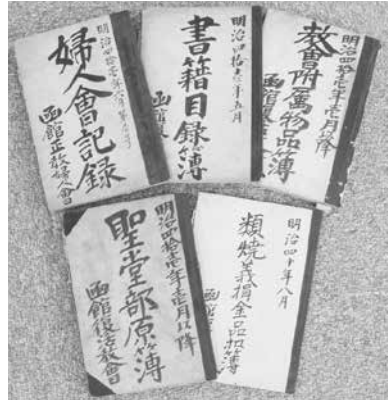 明治四拾壱年
婦人會記録
函館正教婦人會
明治四拾壱年五月
書籍目録簿
函館復
明治四拾壱年壱月以降
教會附属物品簿
函館
明治四拾壱年壱月以降
聖堂部原簿
函館復活教會
明治四十年八月
類焼義捐金品扣簿
函館